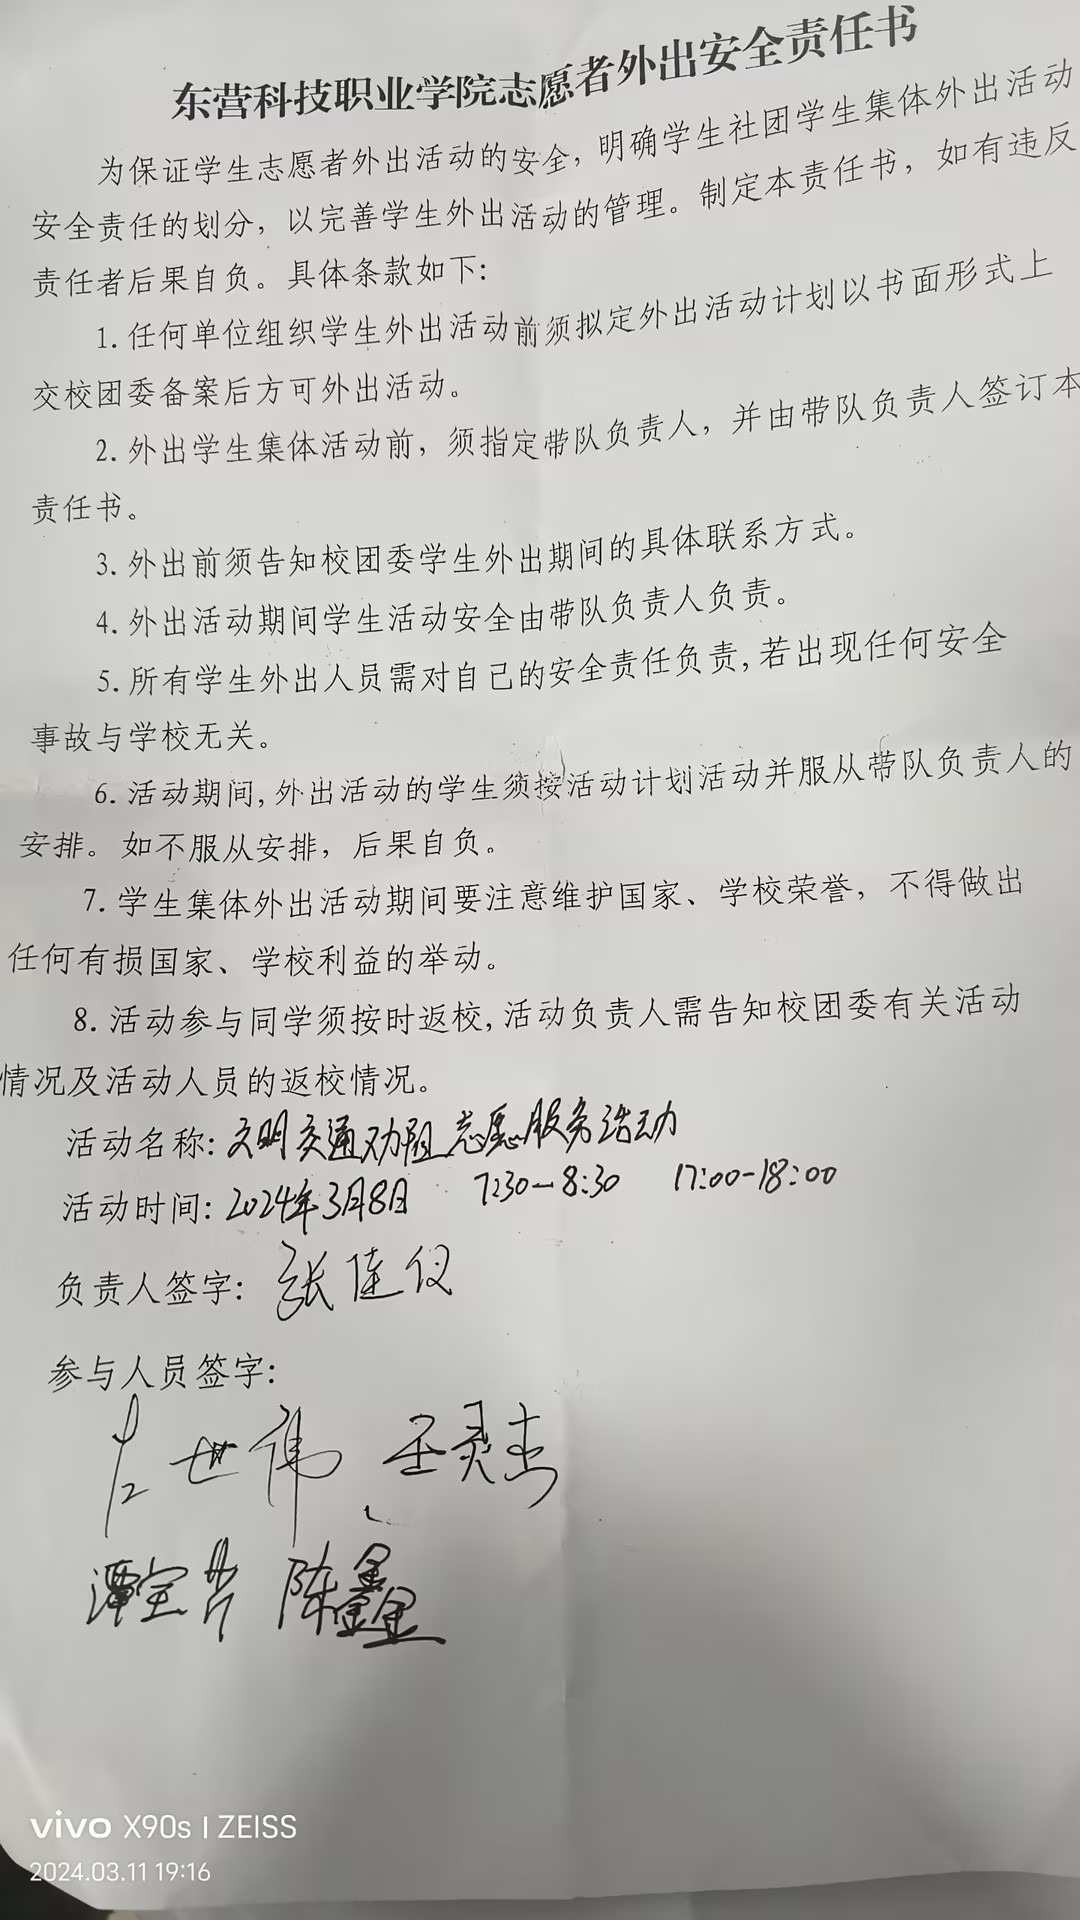 东营科技职业学院志愿者外出安全责任书
为保证学生志愿者外出活动的安全，明确学生社团学生集体外出活动
安全责任的划分，以完善学生外出活动的管理。制定本责任书，如有违反
责任者后果自负。具体条款如下：
1. 任何单位组织学生外出活动前须拟定外出活动计划以书面形式上
交校团委备案后方可外出活动。
2. 外出学生集体活动前，须指定带队负责人，并由带队负责人签订本
责任书。
3. 外出前须告知校团委学生外出期间的具体联系方式。
4. 外出活动期间学生活动安全由带队负责人负责。
5. 所有学生外出人员需对自己的安全责任负责，若出现任何安全
事故与学校无关。
6. 活动期间，外出活动的学生须按活动计划活动并服从带队负责人的
安排。如不服从安排，后果自负。
7. 学生集体外出活动期间要注意维护国家、学校荣誉，不得做出
任何有损国家、学校利益的举动。
8. 活动参与同学须按时返校，活动负责人需告知校团委有关活动
情况及活动人员的返校情况。
活动名称：文明交通劝阻志愿服务活动
活动时间：2024年3月8日 7:30—8:30 17:00-18:00
负责人签字：张佳仪
参与人员签字：
世伟 王灵杰
谭宝 陈鑫
vivo X90s | ZEISS
2024.03.11 19:16